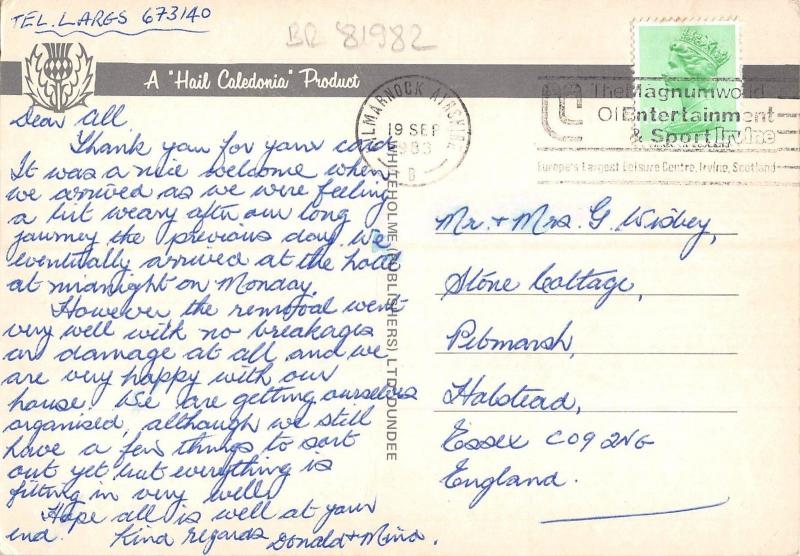 TEL. LARGS 673140
BR 81982
A "Hail Caledonia" Product
KILMARNOCK AYRSHIRE
19 SEP
1983
B
The Magnum world
Of Entertainment
& Sport Irvine
Europe's Largest Leisure Centre, Irvine, Scotland
Dear All,
Thank you for your card.
It was a nice welcome when
we arrived as we were feeling
a bit weary after our long
journey the previous day. We
eventually arrived at the hotel
at midnight on Monday.
However the removal went
very well with no breakages
or damage at all and we
are very happy with our
house. We are getting ourselves
organised, although we still
have a few things to sort
out yet but everything is
fitting in very well.
Hope all is well at your
end. Kind regards Donald + Mina.
WHITEHOLME (PUBLISHERS) LTD. DUNDEE
Mr. + Mrs. G. Wisbey,
Stone Cottage,
Pebmarsh,
Halstead,
Essex CO9 2NG
England.